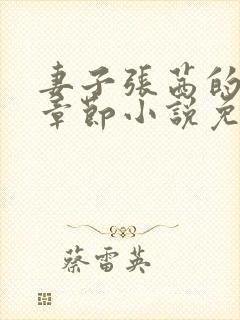 妻子張茜的
章節小說免
蔡雷英